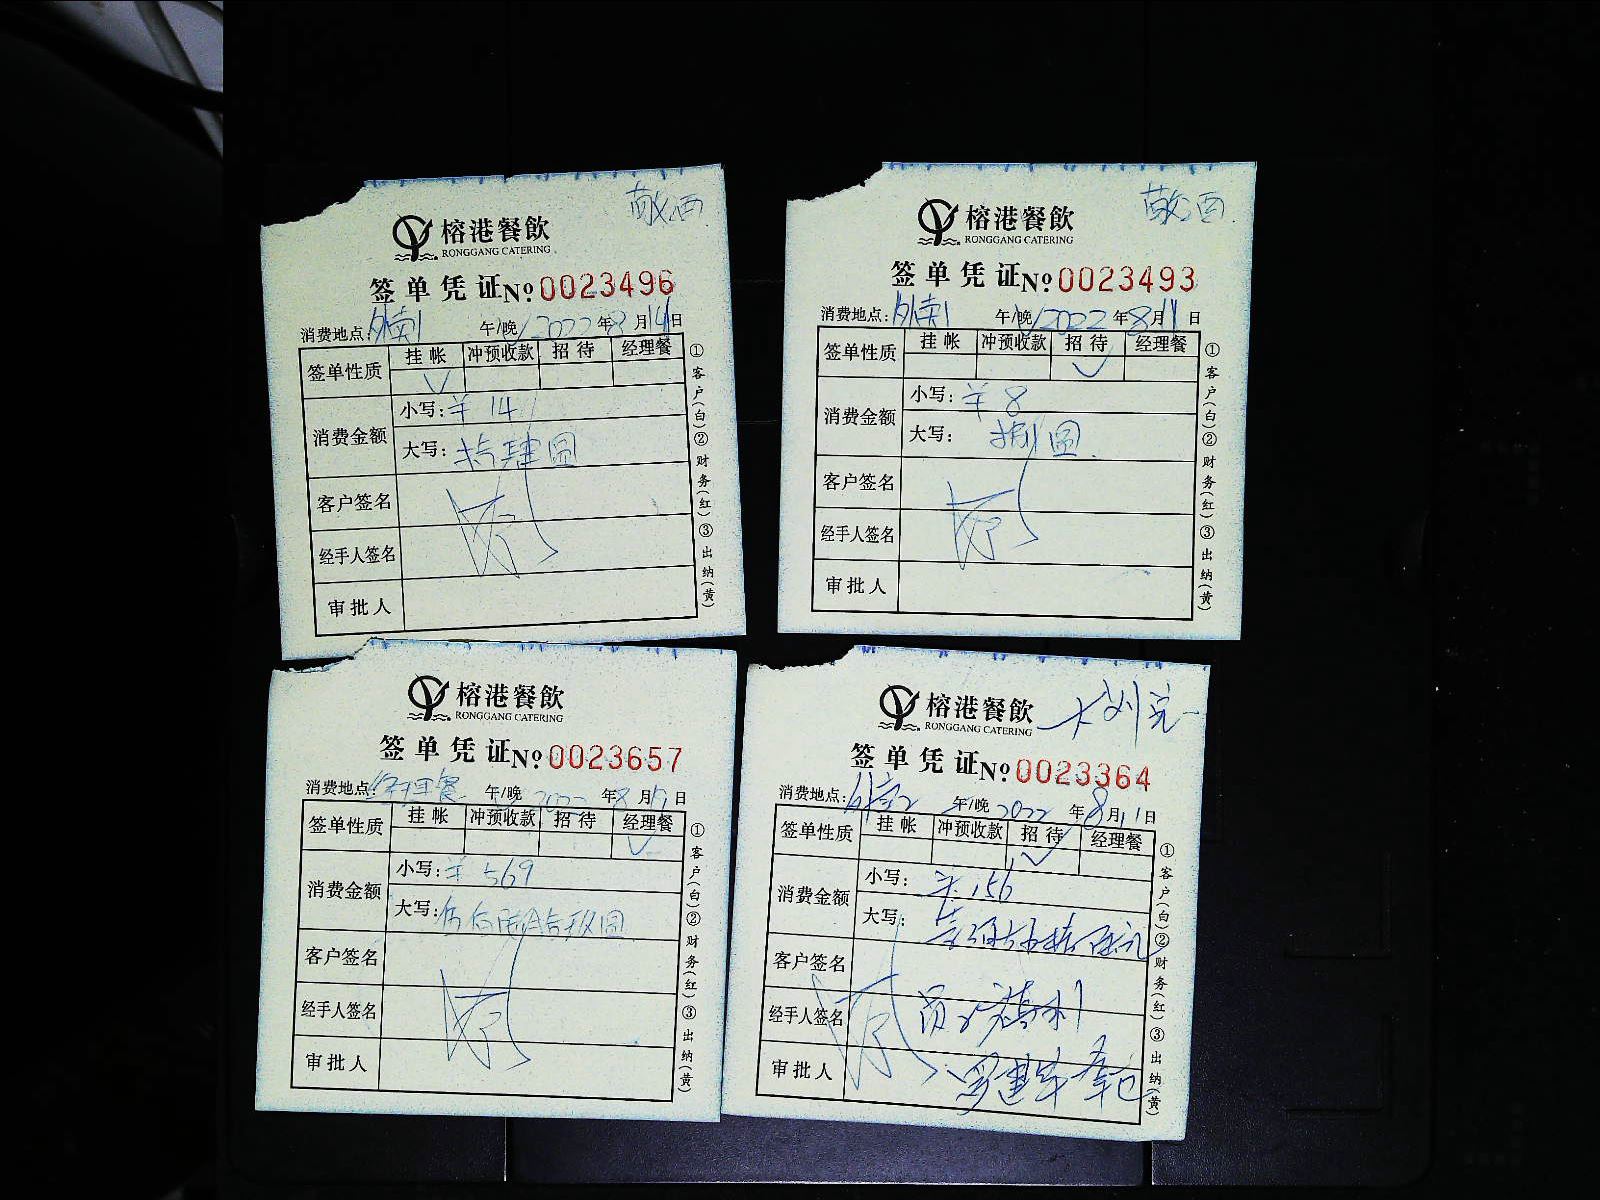 榕港餐飲
RONGGANG CATERING
签单凭证№0023496
消费地点: 午/晚 2022年8月14日
签单性质 挂帐 冲预收款 招待 经理餐
消费金额 小写:￥14
大写:拾肆圆
客户签名
经手人签名
审批人
①客户(白)②财务(红)③出纳(黄)
榕港餐飲
RONGGANG CATERING
签单凭证№0023493
消费地点: 午/晚 2022年8月11日
签单性质 挂帐 冲预收款 招待 经理餐
消费金额 小写:￥8
大写:捌圆
客户签名
经手人签名
审批人
①客户(白)②财务(红)③出纳(黄)
榕港餐飲
RONGGANG CATERING
签单凭证№0023657
消费地点:经理餐 午/晚 2022年8月 日
签单性质 挂帐 冲预收款 招待 经理餐
消费金额 小写:￥569
大写:伍佰陆拾玖圆
客户签名
经手人签名
审批人
①客户(白)②财务(红)③出纳(黄)
榕港餐飲
RONGGANG CATERING
签单凭证№0023364
消费地点: 午/晚 2022年8月11日
签单性质 挂帐 冲预收款 招待 经理餐
消费金额 小写:￥156
大写:
客户签名
经手人签名
审批人
①客户(白)②财务(红)③出纳(黄)